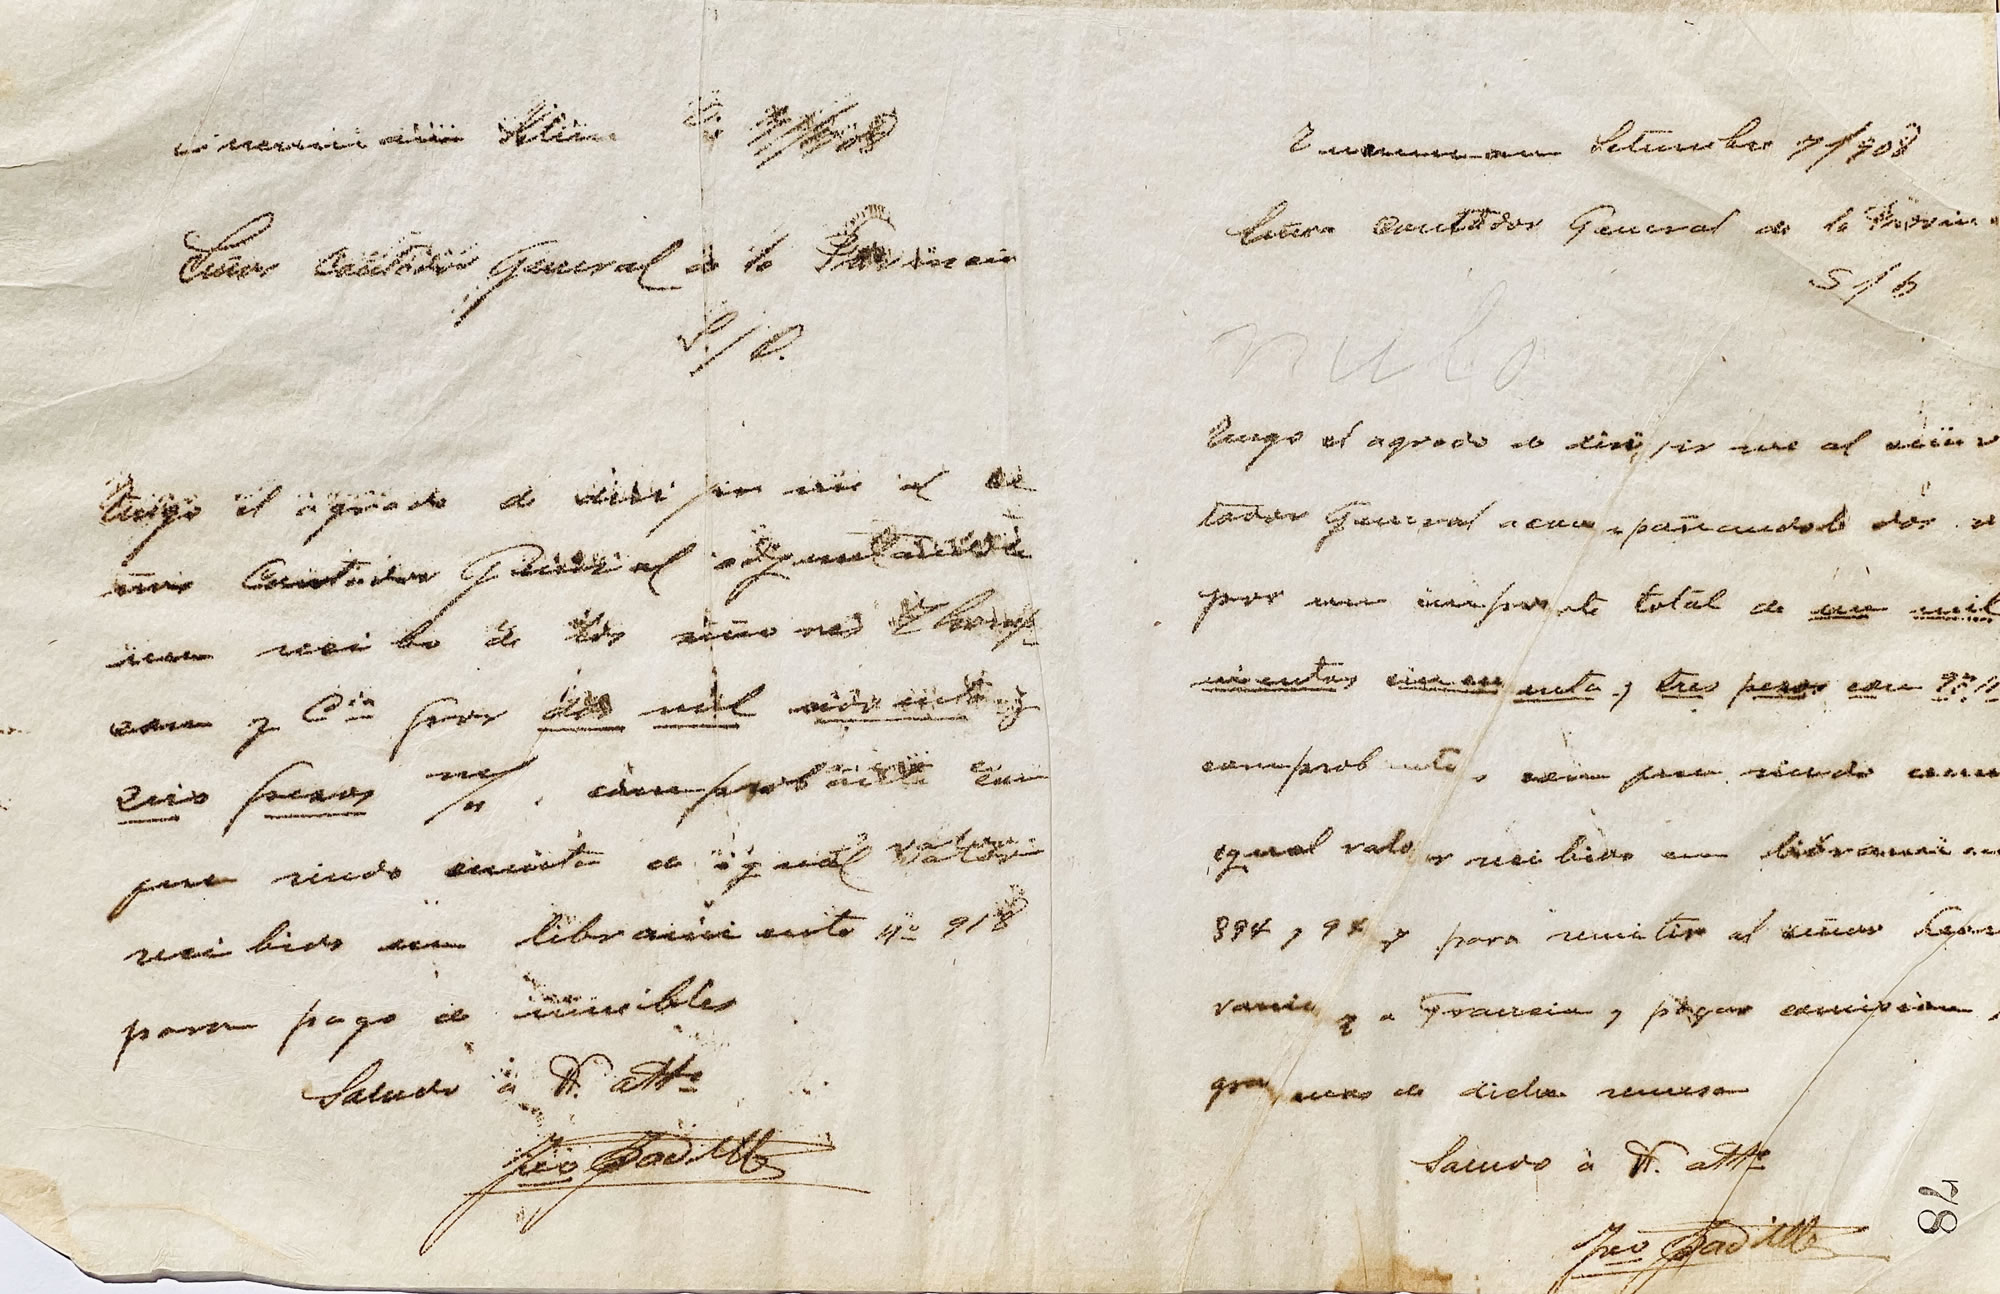 Setiem 7/908
Señor Contador General de la Provincia
S/D.
Tengo el agrado de dirijirme al se
ñor Contador General adjuntandole
un recibo de los señores Thomp
son y Cia por dos mil
seis pesos m/n. comprobante con
que rindo cuenta de igual valor
recibido en libramiento No 918
para pago de muebles
Saludo á V. atto
Fco Padilla
Tucuman Setiembre 7/908
Señor Contador General de la Provin
S/D
nulo
Tengo el agrado de dirijirme al señor
tador General acompañandole dos
por un importe total de un mil
cientos cincuenta y tres pesos con
comprobantes con que rindo cuen
igual valor recibido en libramien
894 y 94 y para remitir al señor
a Francia y pagar comision y
de dicha remesa
Saludo á V. atto
Fco Padilla
78